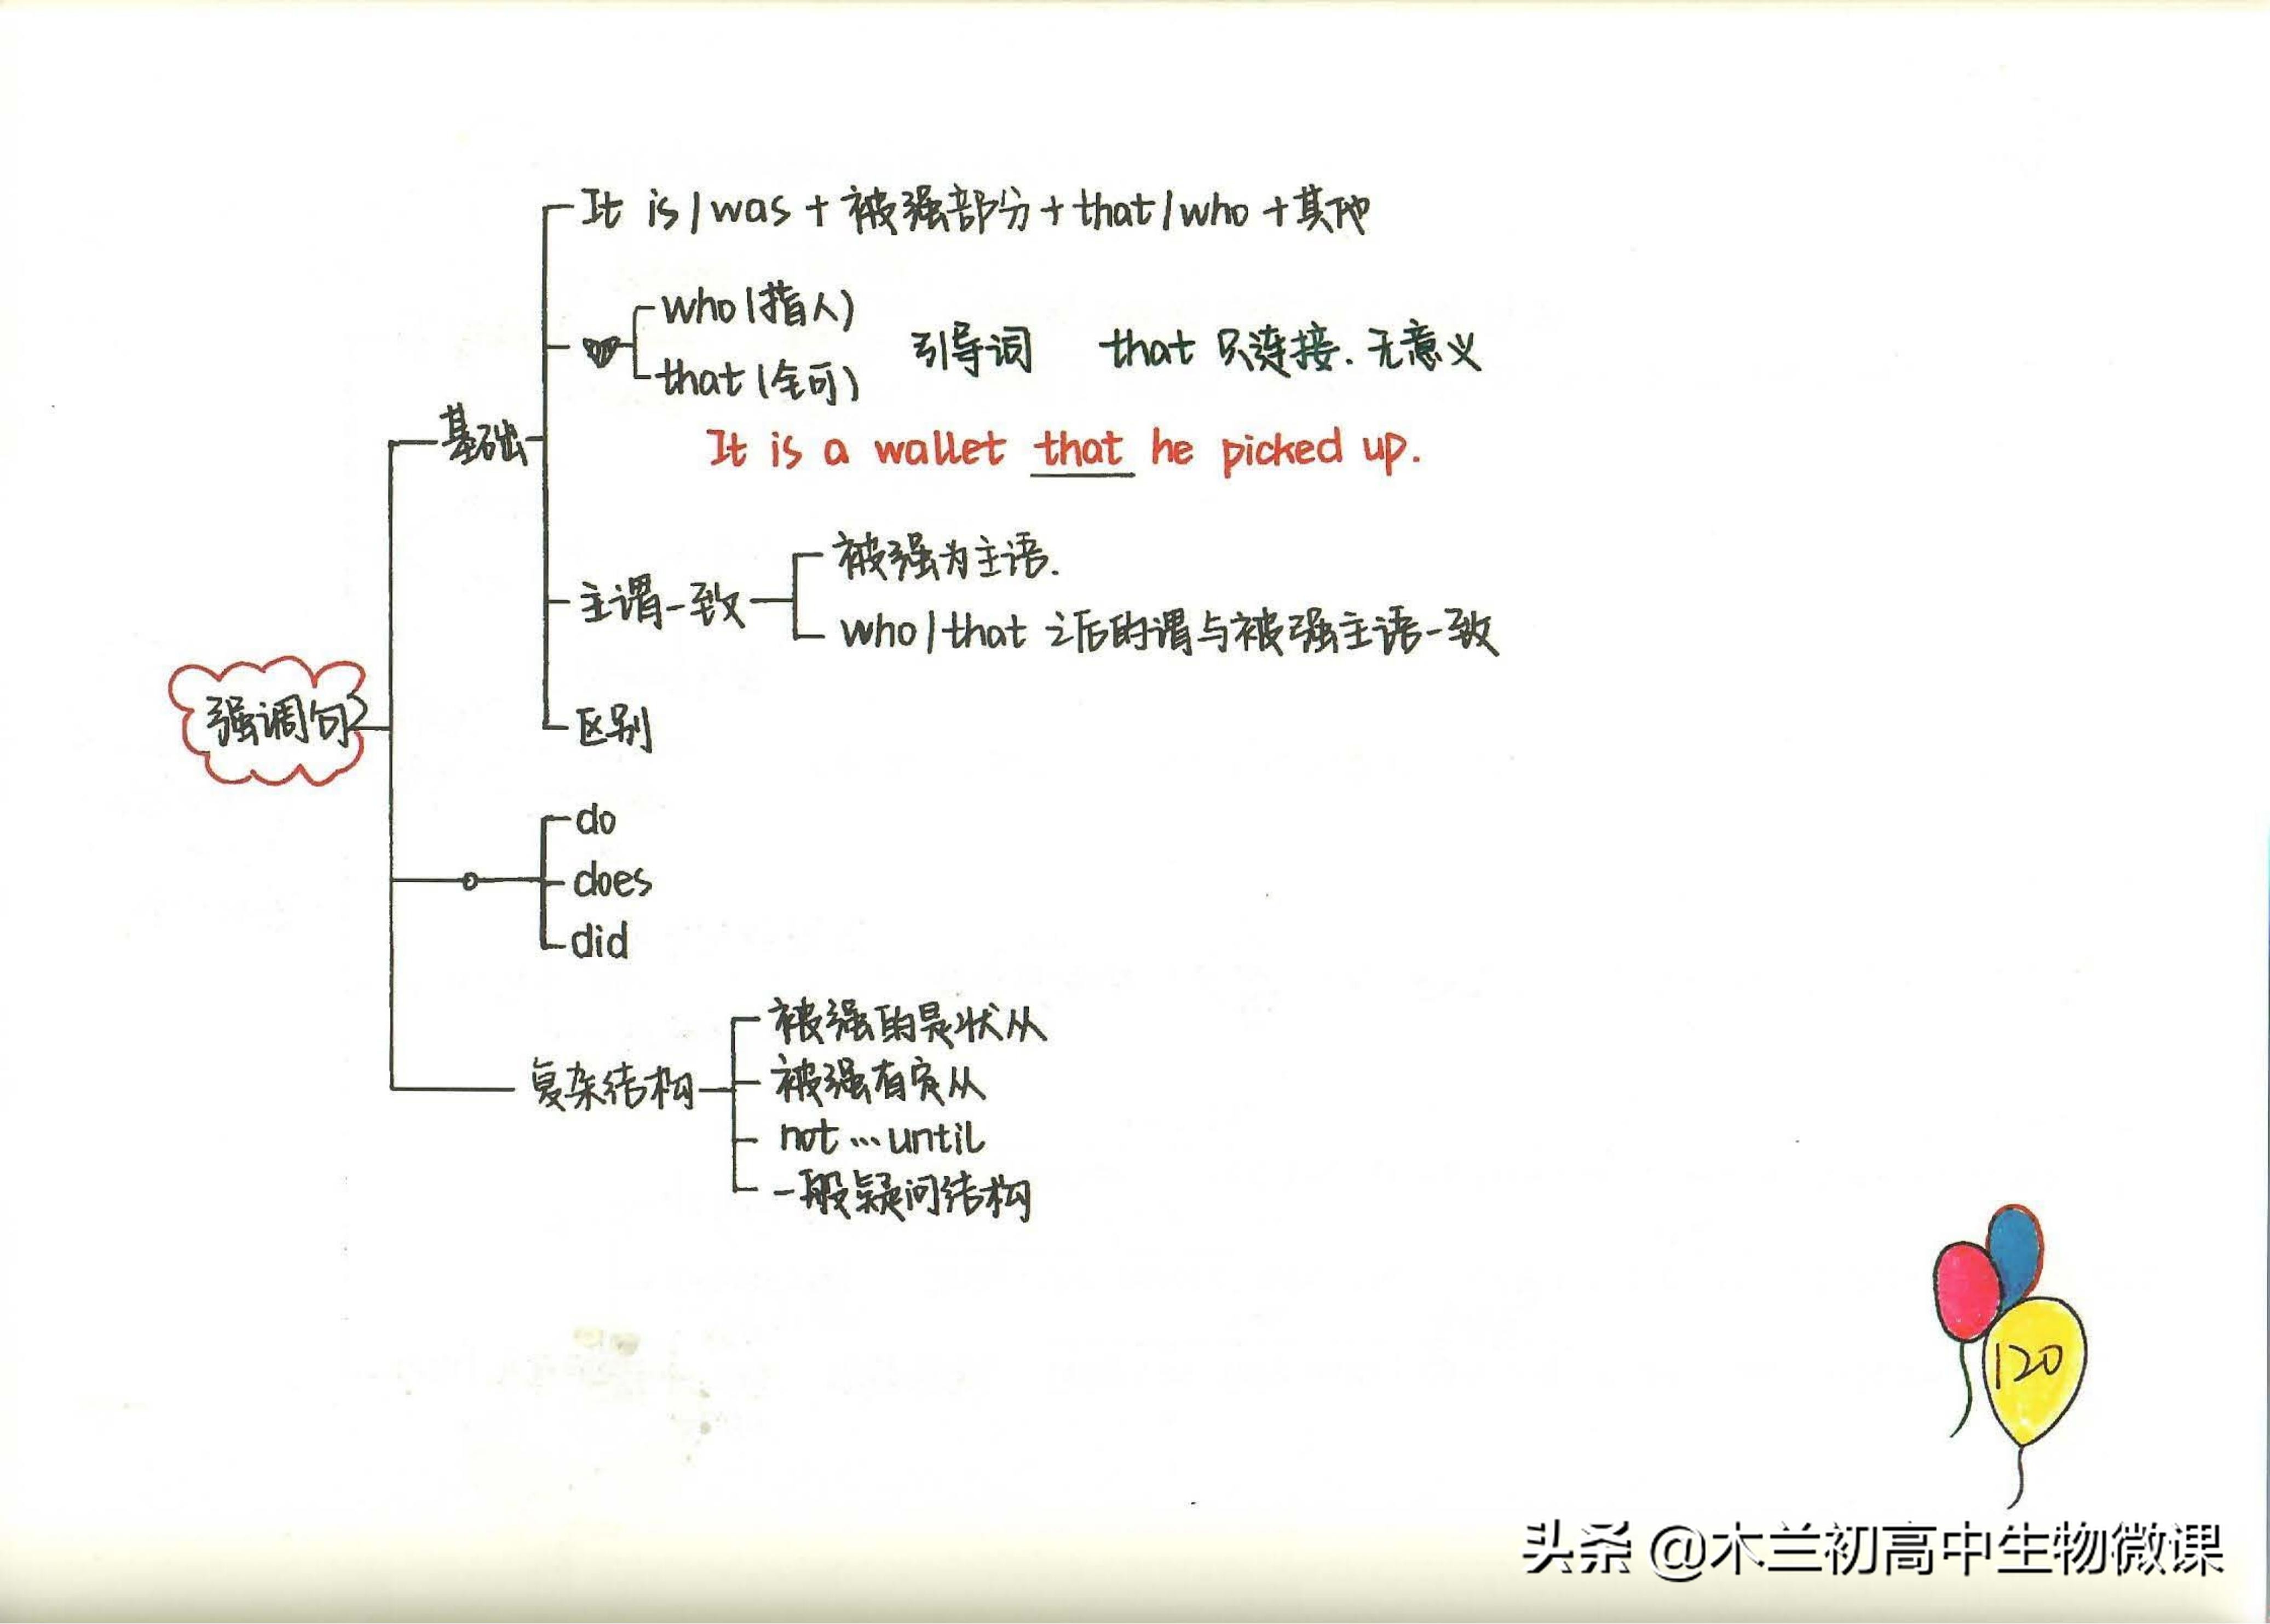 It is/was+被强部分+that/who+其他
who(指人)
引导词 that 只连接.无意义
that(全可)
基础
It is a wallet that he picked up.
被强为主语.
主谓一致
who/that 之后的谓与被强主语一致
强调句
区别
do
does
did
被强的是状从
复杂结构
被强有宾从
not…until
一般疑问结构
120
头条 @木兰初高中生物微课